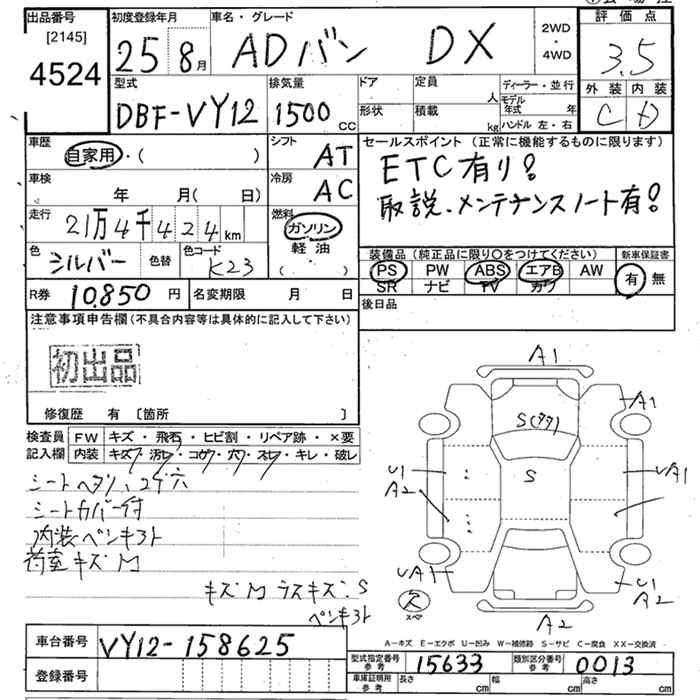 出品番号
[2145]
4524
初度登録年月
25 8月
車名・グレード
ADバン DX
2WD
・
4WD
評価点
3.5
外装 内装
C D
型式
DBF-VY12
排気量
1500 CC
ドア
形状
定員 人
積載 kg
ディーラー・並行
モデル年式 年
ハンドル 左・右
車歴
自家用・( )
シフト
AT
車検
年 月( 日)
冷房
AC
走行
21万4千424km
燃料
ガソリン
軽油
( )
色
シルバー
色替
色コード
K23
セールスポイント(正常に機能するものに限ります)
ETC有り!
取説.メンテナンスノート有!
装備品(純正品に限り○をつけてください)
新車保証書
PS PW ABS エアB AW
SR ナビ TV カワ
有 無
R券 10,850円
名変期限 月 日
後日品
注意事項申告欄(不具合内容等は具体的に記入して下さい)
初出品
修復歴 有 [箇所 ]
検査員
記入欄
FW キズ・飛石・ヒビ割・リペア跡・×要
内装 キズ・汚レ・コゲ・穴・スレ・キレ・破レ
シートヘタリ、コゲ穴
シートカバー付
内装ペンキヨト
荷室キズM
キズM ラスキズ.S
ペンキヨト
A1
A1
S(タタ)
S
U1
A2
UA1
UA1
U1
A2
A2
スペア
車台番号
VY12-158625
登録番号
A-キズ E-エクボ U-凹み W-補修跡 S-サビ C-腐食 XX-交換済
型式指定番号
参考
15633
類別区分番号
参考
0013
車庫証明用
参考
長さ cm
幅 cm
高さ cm